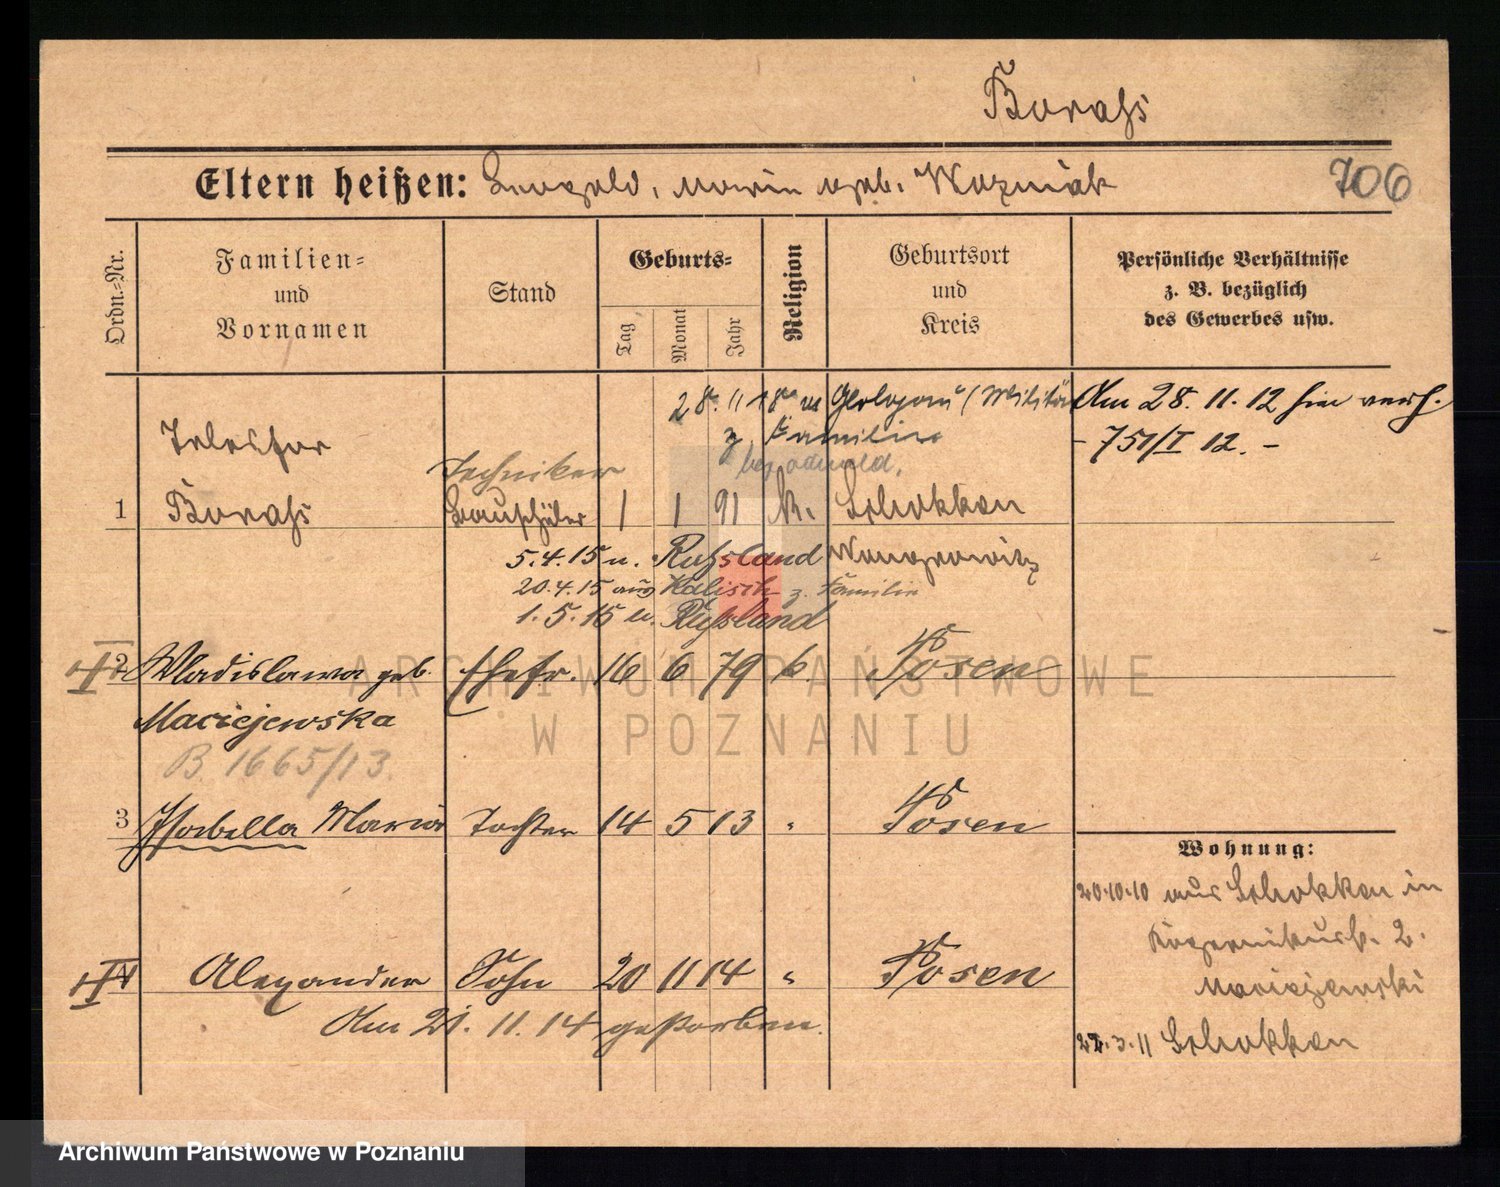 Borahs
Eltern heißen: Leopold, Maria geb. Wozniak
706
Ordn.-Nr.
Familien-
und
Vornamen
Stand
Geburts-
Tag
Monat
Jahr
Religion
Geburtsort
und
Kreis
Persönliche Verhältnisse
z. B. bezüglich
des Gewerbes usw.
28. 11 (Militär
z. Familie
Am 28. 11. 12 hier verh.
- 751/I 12. -
Telesfor
Techniker
1 Borahs Bauschüler 1 1 91 k. Schokken
5.4.15 n. Russland Wongrowitz
20.4.15 aus Kalisch z. Familie
1. 5. 15 n. Russland
2 Wladislawa geb. Ehefr. 16 6 79 k. Posen
Maciejewska
B. 1665/13.
3 Isabella Maria Tochter 14 5 13 " Posen
Wohnung:
20.10.10 aus Schokken in
2.
Maciejewski
4 Alexander Sohn 20 11 14 " Posen
Am 21. 11. 14 gestorben.
22.3.11 Schokken
ARCHIWUM PAŃSTWOWE
W POZNANIU
Archiwum Państwowe w Poznaniu